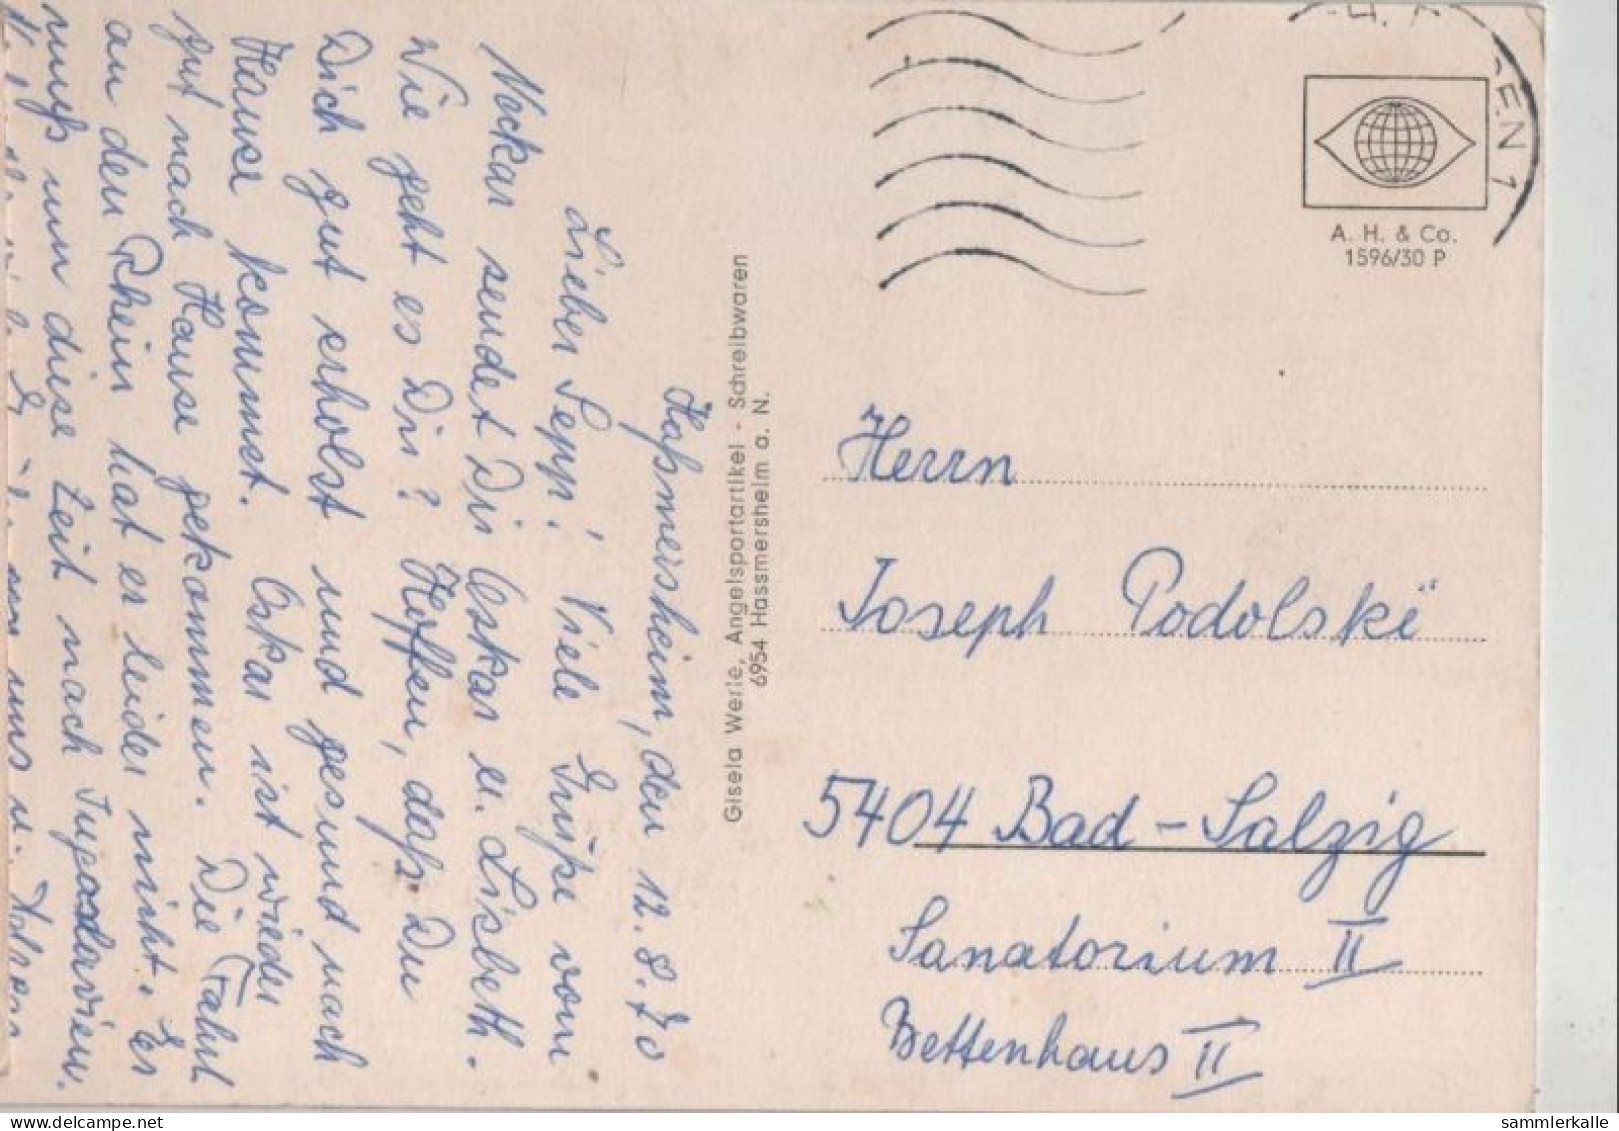 Haßmersheim, den 12.8.70
Lieber Sepp! Viele Grüße vom
Neckar sendet Dir Oskar u. Lisbeth.
Wie geht es Dir? Hoffen, daß Du
Dich gut erholst und gesund nach
Hause kommst. Oskar ist wieder
gut nach Hause gekommen. Die Fahrt
an den Rhein hat er leider nicht. Er
muß um diese Zeit nach Jugoslavien.
Gisela Werle, Angelsportartikel - Schreibwaren
6954 Hassmersheim a. N.
EN 1
A. H. & Co.
1596/30 P
Herrn
Joseph Podolski
5404 Bad-Salzig
Sanatorium II
Bettenhaus II
sammlerkalle